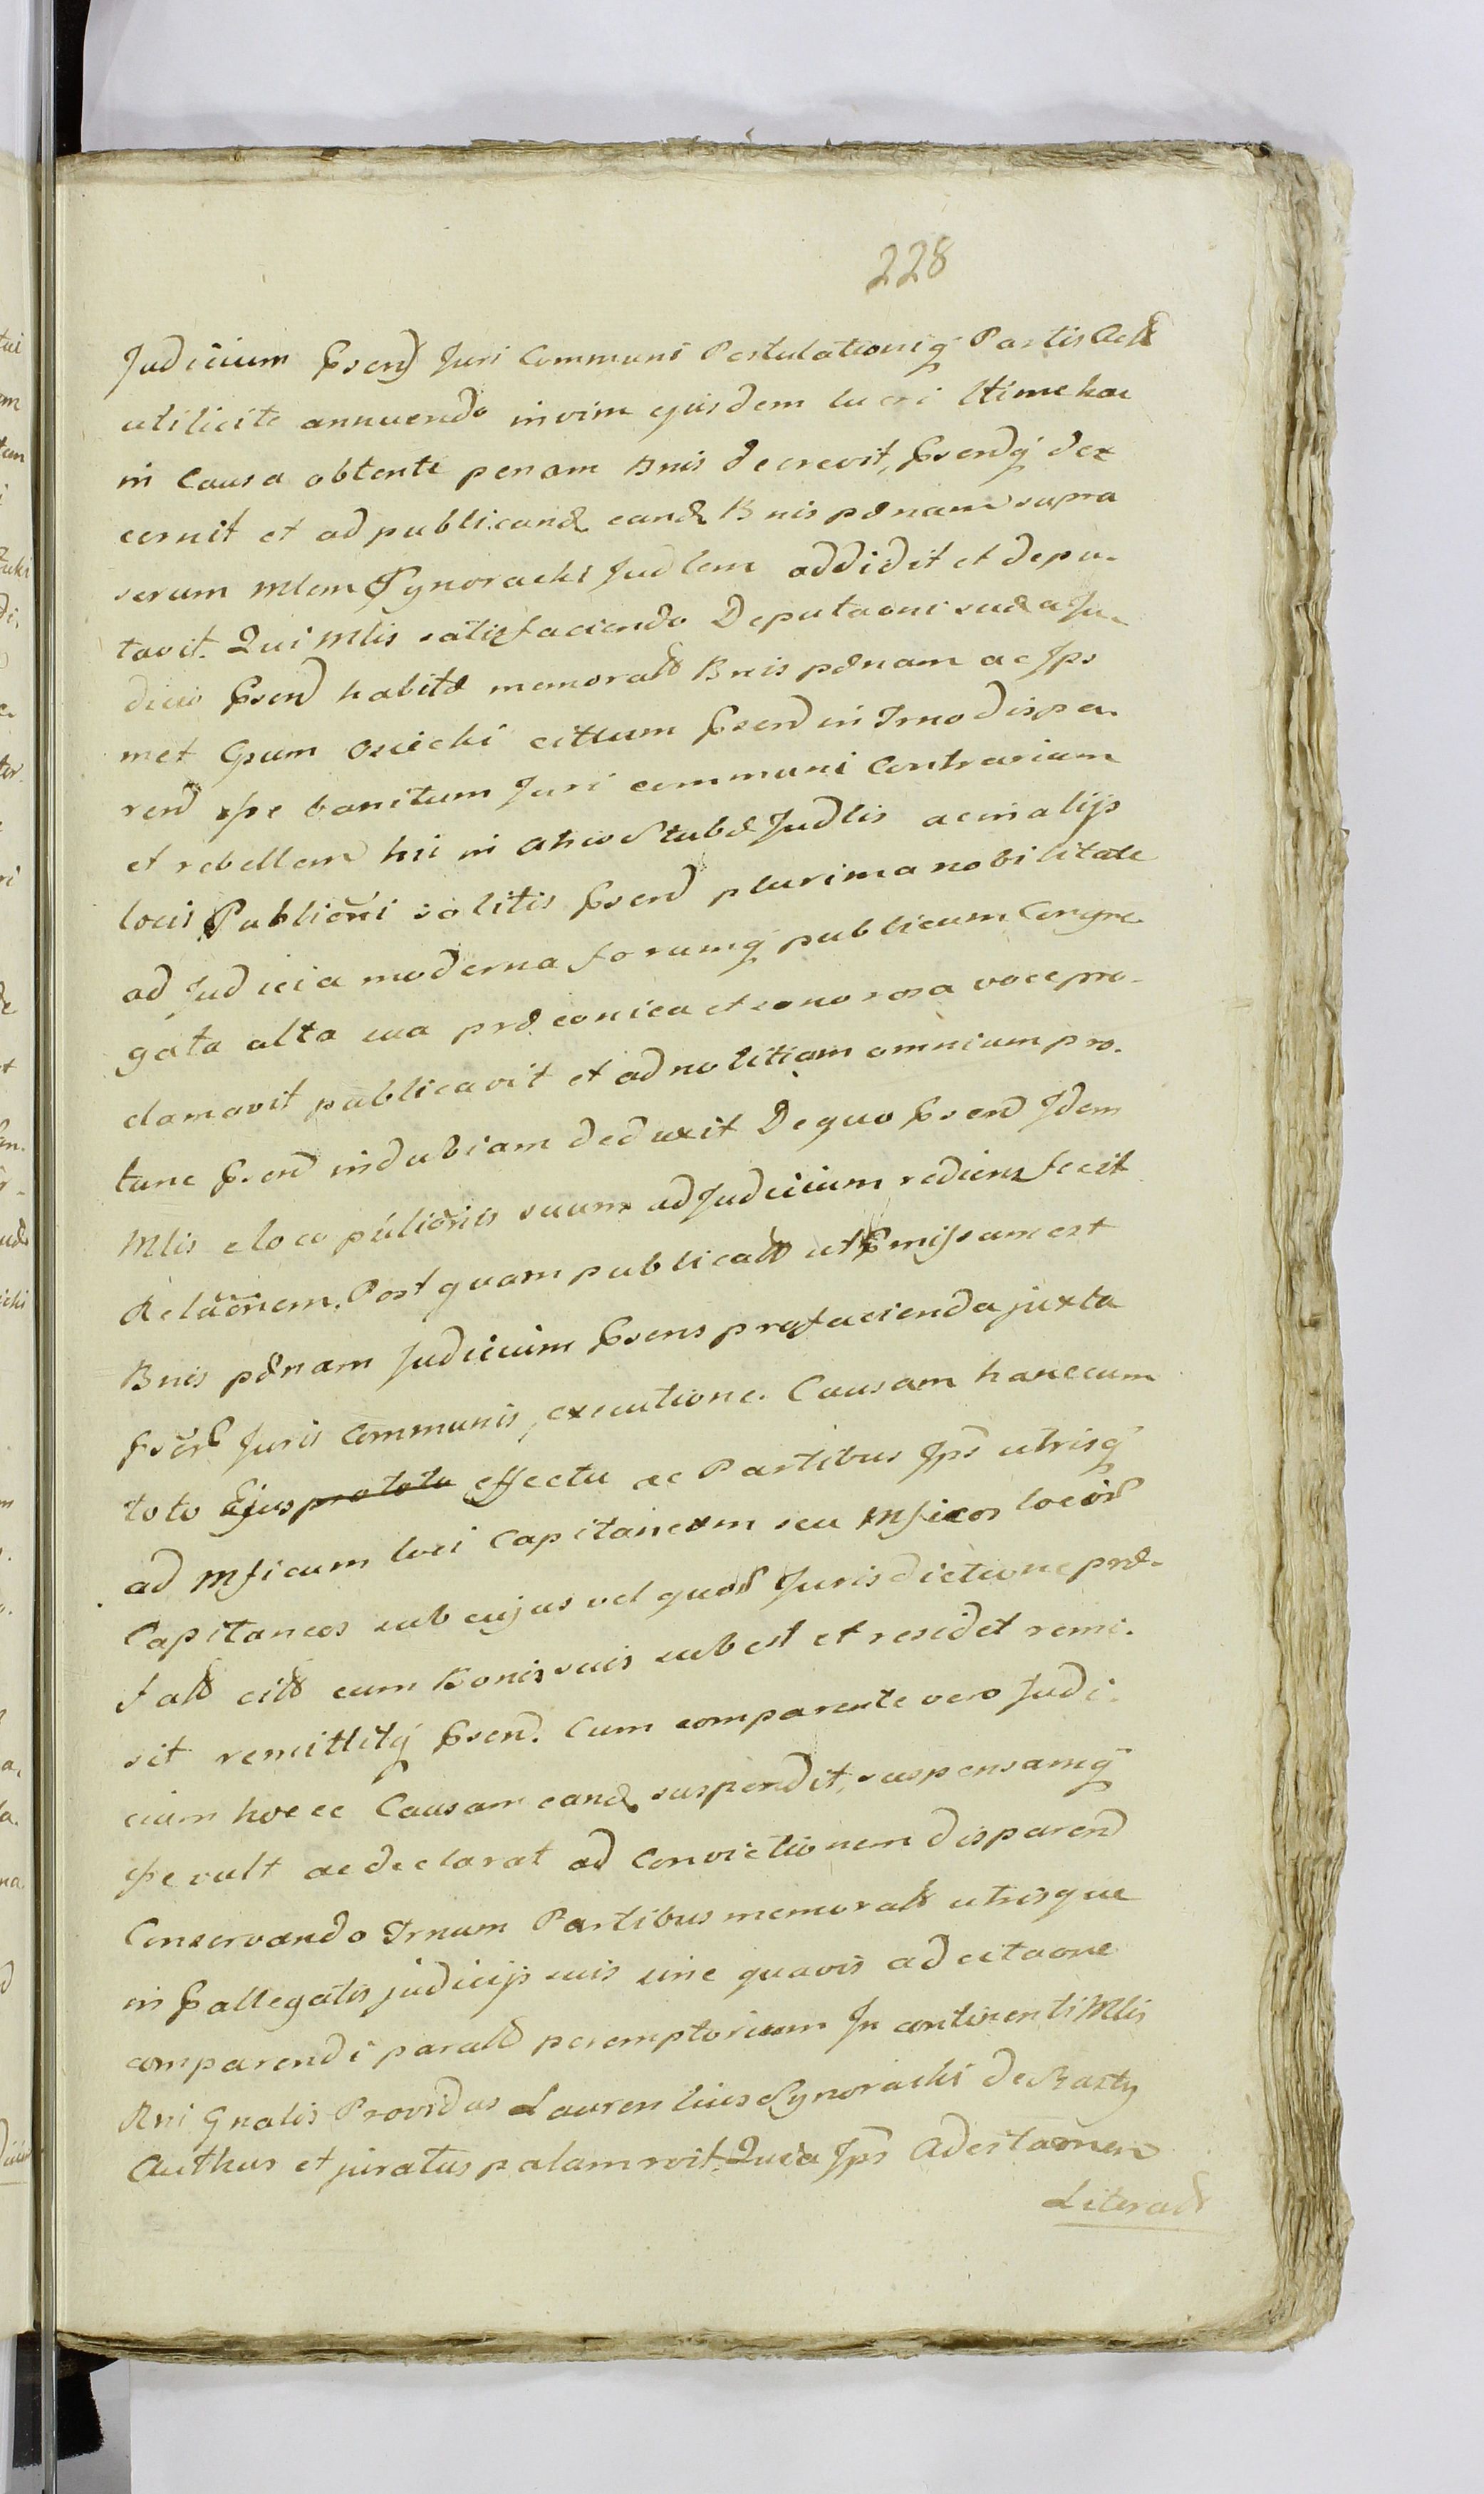 228
Judicium Psens Juri Communi Postulationiq Partis
utilicite annuendo in vim ejusdem lucri ltime hac
in Causa obtenti penam Bnis decrevit, Psendq de
cernit et ad publicand eand Bnis pænam supra
serum Mlem Synoracki Judlem addidit et depu-
tavit. Qui Mlis satisfaciendo Deputaoni suæ a Ju-
dicio Psend habitæ memorat Bnis pænam ac Ips
met Gsum Osiecki cittum Psend in Trno dispa-
rend banitum Juri communi Contrarium
et rebellem hic in Atrio Stubæ Judlis ac in alijs
locis Publiconi solitis Psend plurima nobilitate
ad Judicia moderna forumq publicum Congre
gata alta sua præconica et sonorosa voce pro-
clamavit publicavit et ad notitiam omnium pro.
tunc Psend indubiam deduxit De quo Psend Idem
Mlis e loco publicõnis suum ad Judicium rediens fecit
Relaõnem. Postquam publicatt ut Pmissum est
Bnis pænam Judicium Psens pro facienda juxta
Juris Communis, executione. Causam hanc cum
toto Ejus pro toto effectu ac Partibus Ips utrisq
ad Mficum loci Capitaneum seu Mficos locor
Capitaneos sub cujus vel quor Jurisdictione præ-
fatt citt cum Bonis suis subest et residet remi.
sit remittitq Psend. Cum comparente vero Judi.
cium hocce Causam eand suspendit, suspensamq
vult ac declarat ad Convictionem disparend
Conservando Trnum Partibus memoratt utrisque
in Pallegatis judicijs suis sine quavis adcitaone
comparendi paratt peremptorium In continenti Mlis
Rni Gnalis Providus Laurentius Synoracki de
Authus et juratus palam rcit. Quia Ips Adcitaonem
Literatt